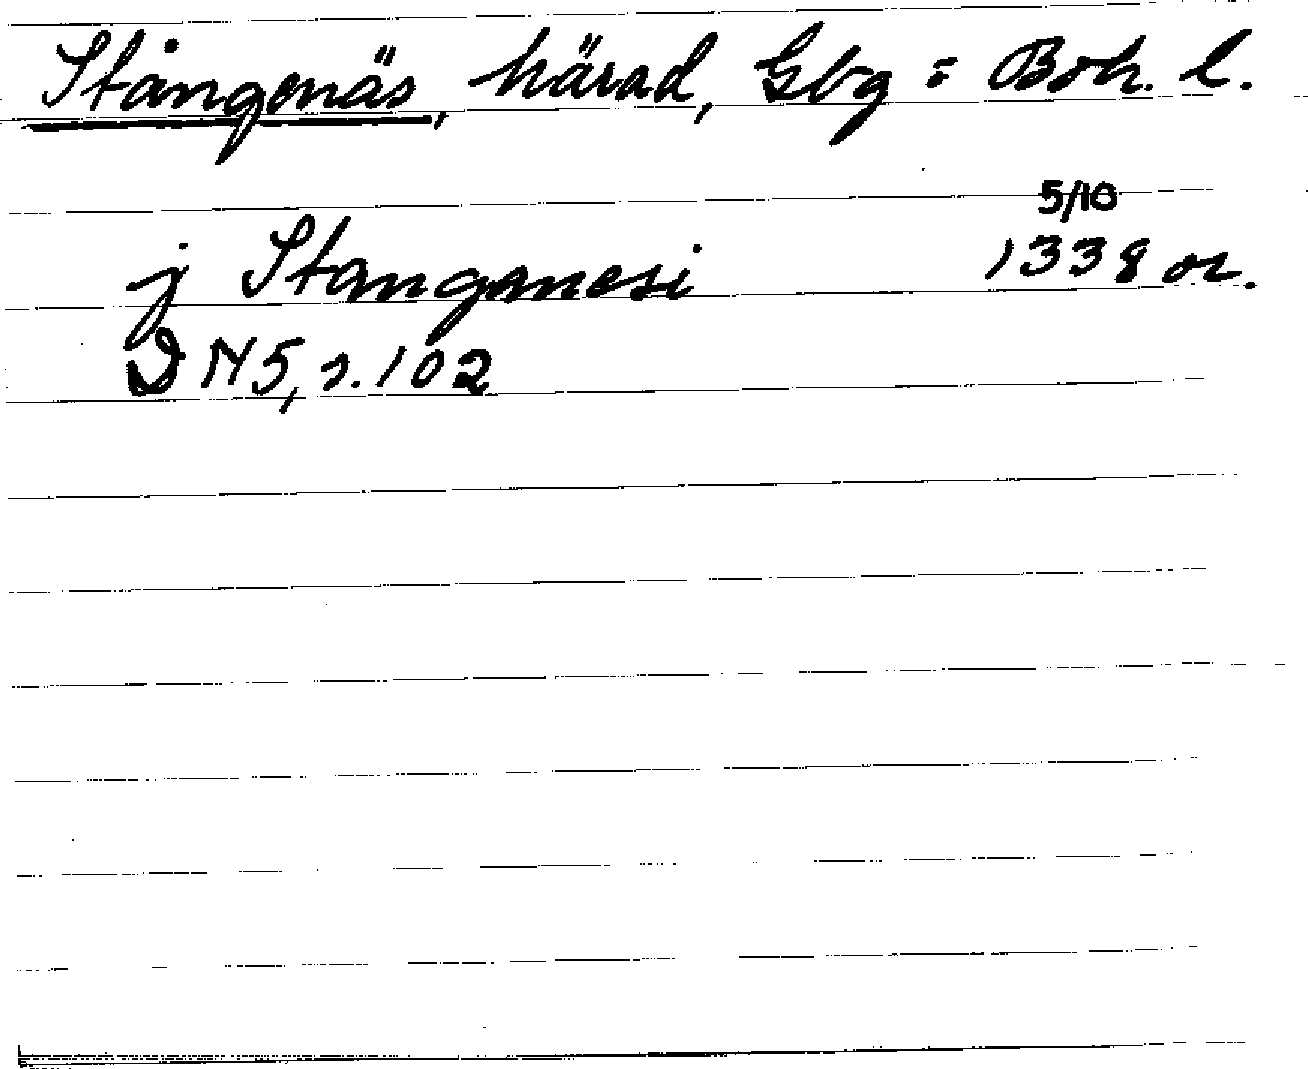 Stångenäs, härad, Gbg = Boh. l.
5/10
j Stanganesi 1338 or.
DN5, s. 102